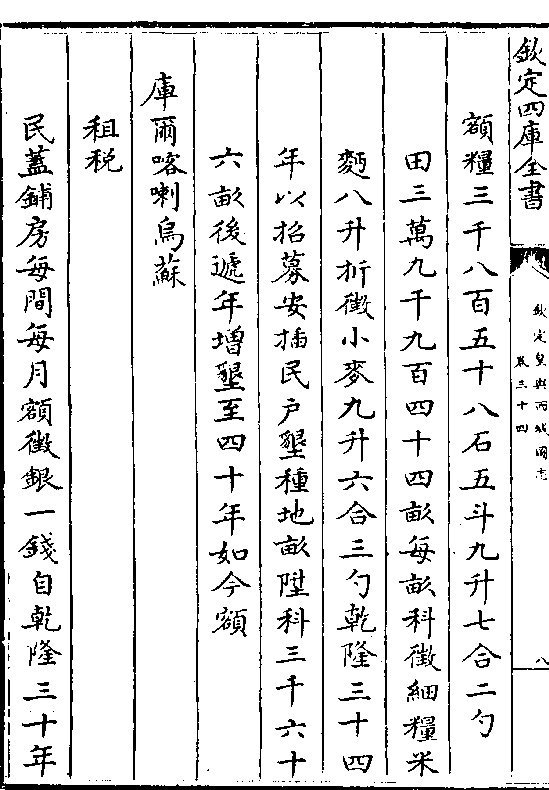 欽定四庫全書
欽定皇輿西域圖志
卷三十四
八
額糧三千八百五十八石五斗九升七合二勺
田三萬九千九百四十四畝每畝科徵細糧米
麪八升折徵小麥九升六合三勺乾隆三十四
年以招募安插民戶墾種地畝陞科三千六十
六畝後遞年增墾至四十年如今額
庫爾喀喇烏蘇
租税
民蓋鋪房每間每月額徵銀一錢自乾隆三十年